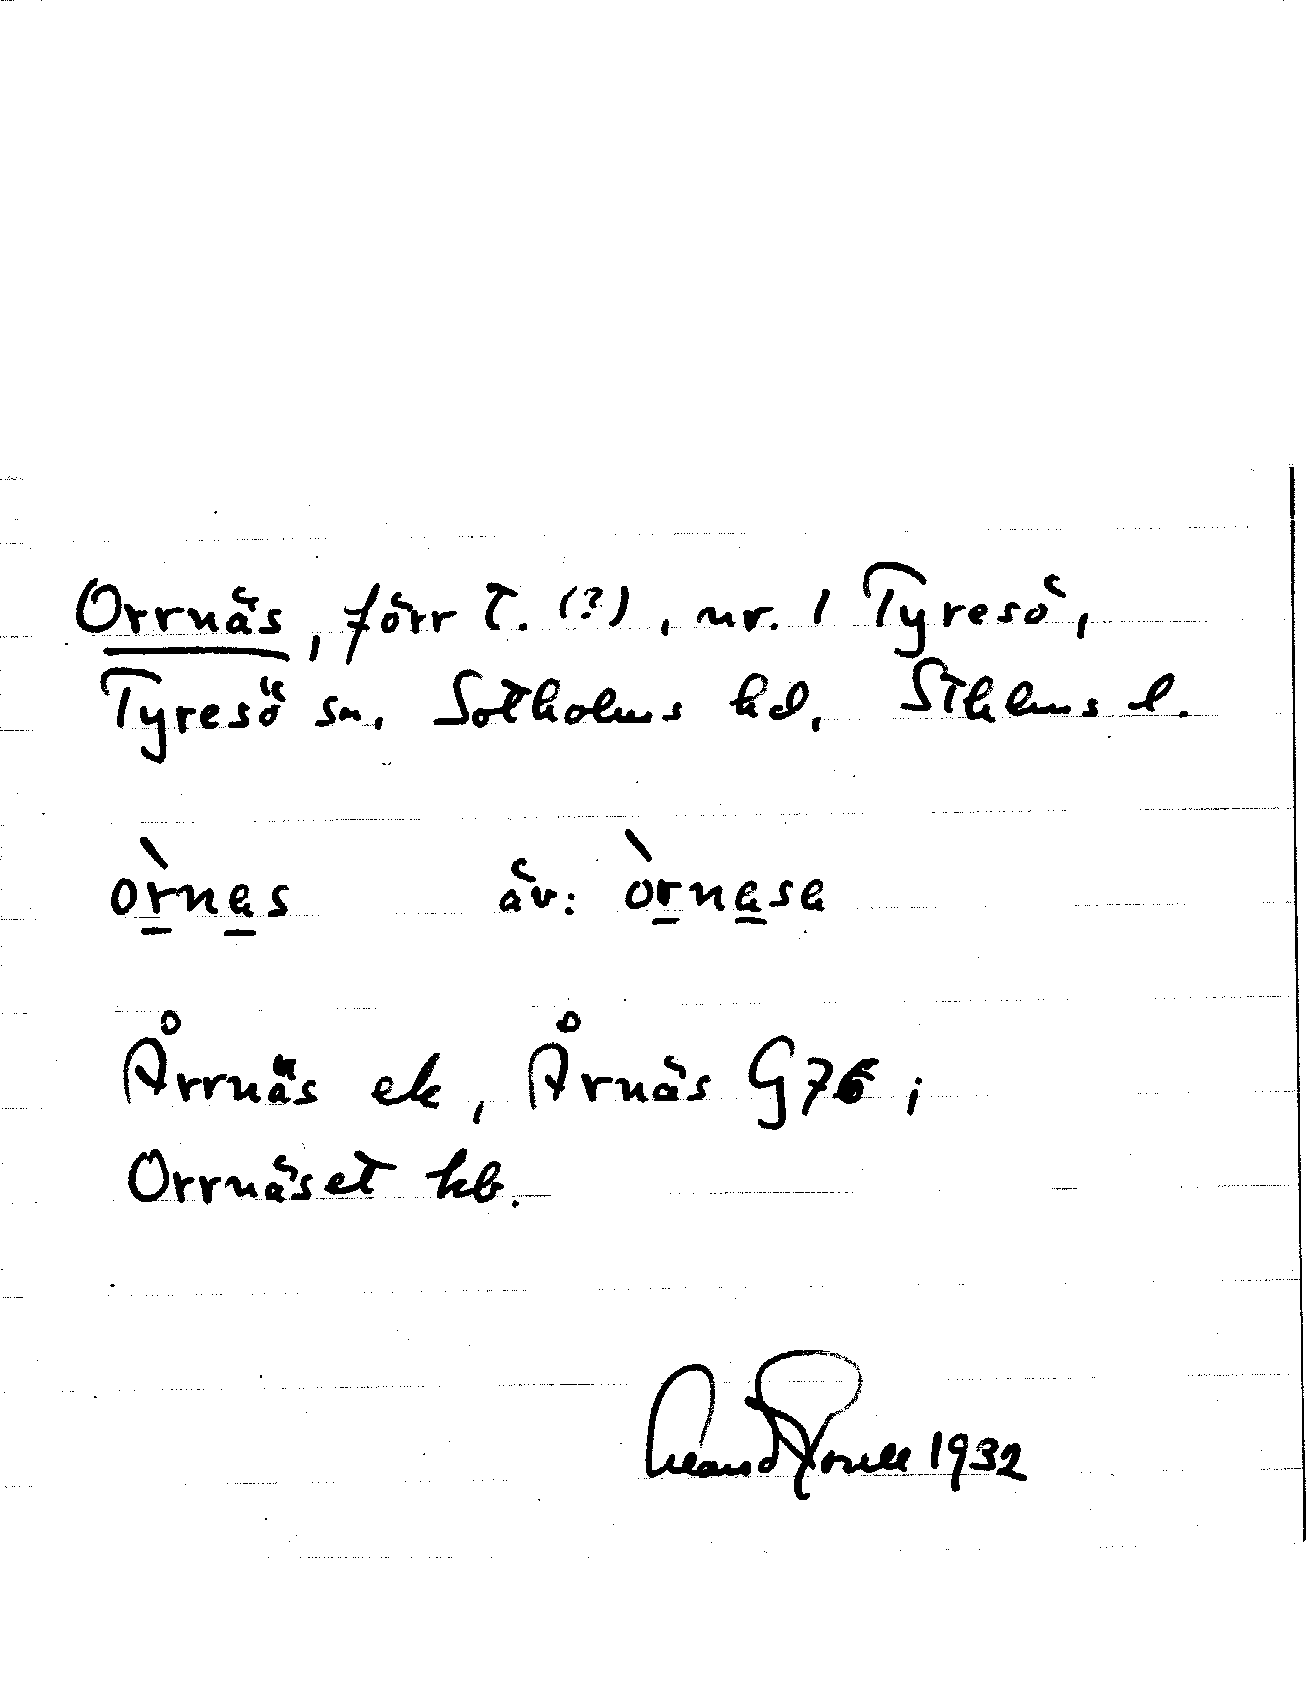 Orrnäs, förr t. (?), nr. 1 Tyresö,
Tyresö sn, Sotholms hd, Sthlms l.
òrnas äv: òrnasa
Årrnäs ek, Årnäs G76;
Orrnäset kb.
1932